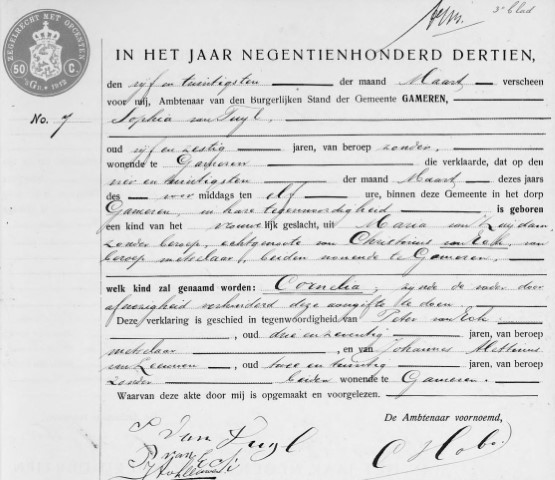 3e blad
ZEGELRECHT MET OPCENTEN
50 C.
IN HET JAAR NEGENTIENHONDERD DERTIEN,
den vijf en twintigsten der maand Maart verscheen
voor mij, Ambtenaar van den Burgerlijken Stand der Gemeente GAMEREN,
No. 7
Sophia van Tuyl,
oud vijf en zestig jaren, van beroep zonder,
wonende te Gameren die verklaarde, dat op den
vier en twintigsten der maand Maart dezes jaars
des voor middags ten elf ure, binnen deze Gemeente in het dorp
Gameren, en hare tegenwoordigheid is geboren
een kind van het vrouwelijk geslacht, uit Maria van Zuijdam,
zonder beroep, echtgenoote van Christinus van Eck, van
beroep metselaar, beiden wonende te Gameren,
welk kind zal genaamd worden: Cornelia; zijnde de vader door
afwezigheid verhinderd deze aangifte te doen.
Deze verklaring is geschied in tegenwoordigheid van Peter van Eck
, oud drie en zeventig jaren, van beroep
metselaar en van Johannes
van Leeuwen, oud twee en twintig jaren, van beroep
zonder beiden wonende te Gameren.
Waarvan deze akte door mij is opgemaakt en voorgelezen.
De Ambtenaar voornoemd,
S van Tuyl
P van Eck